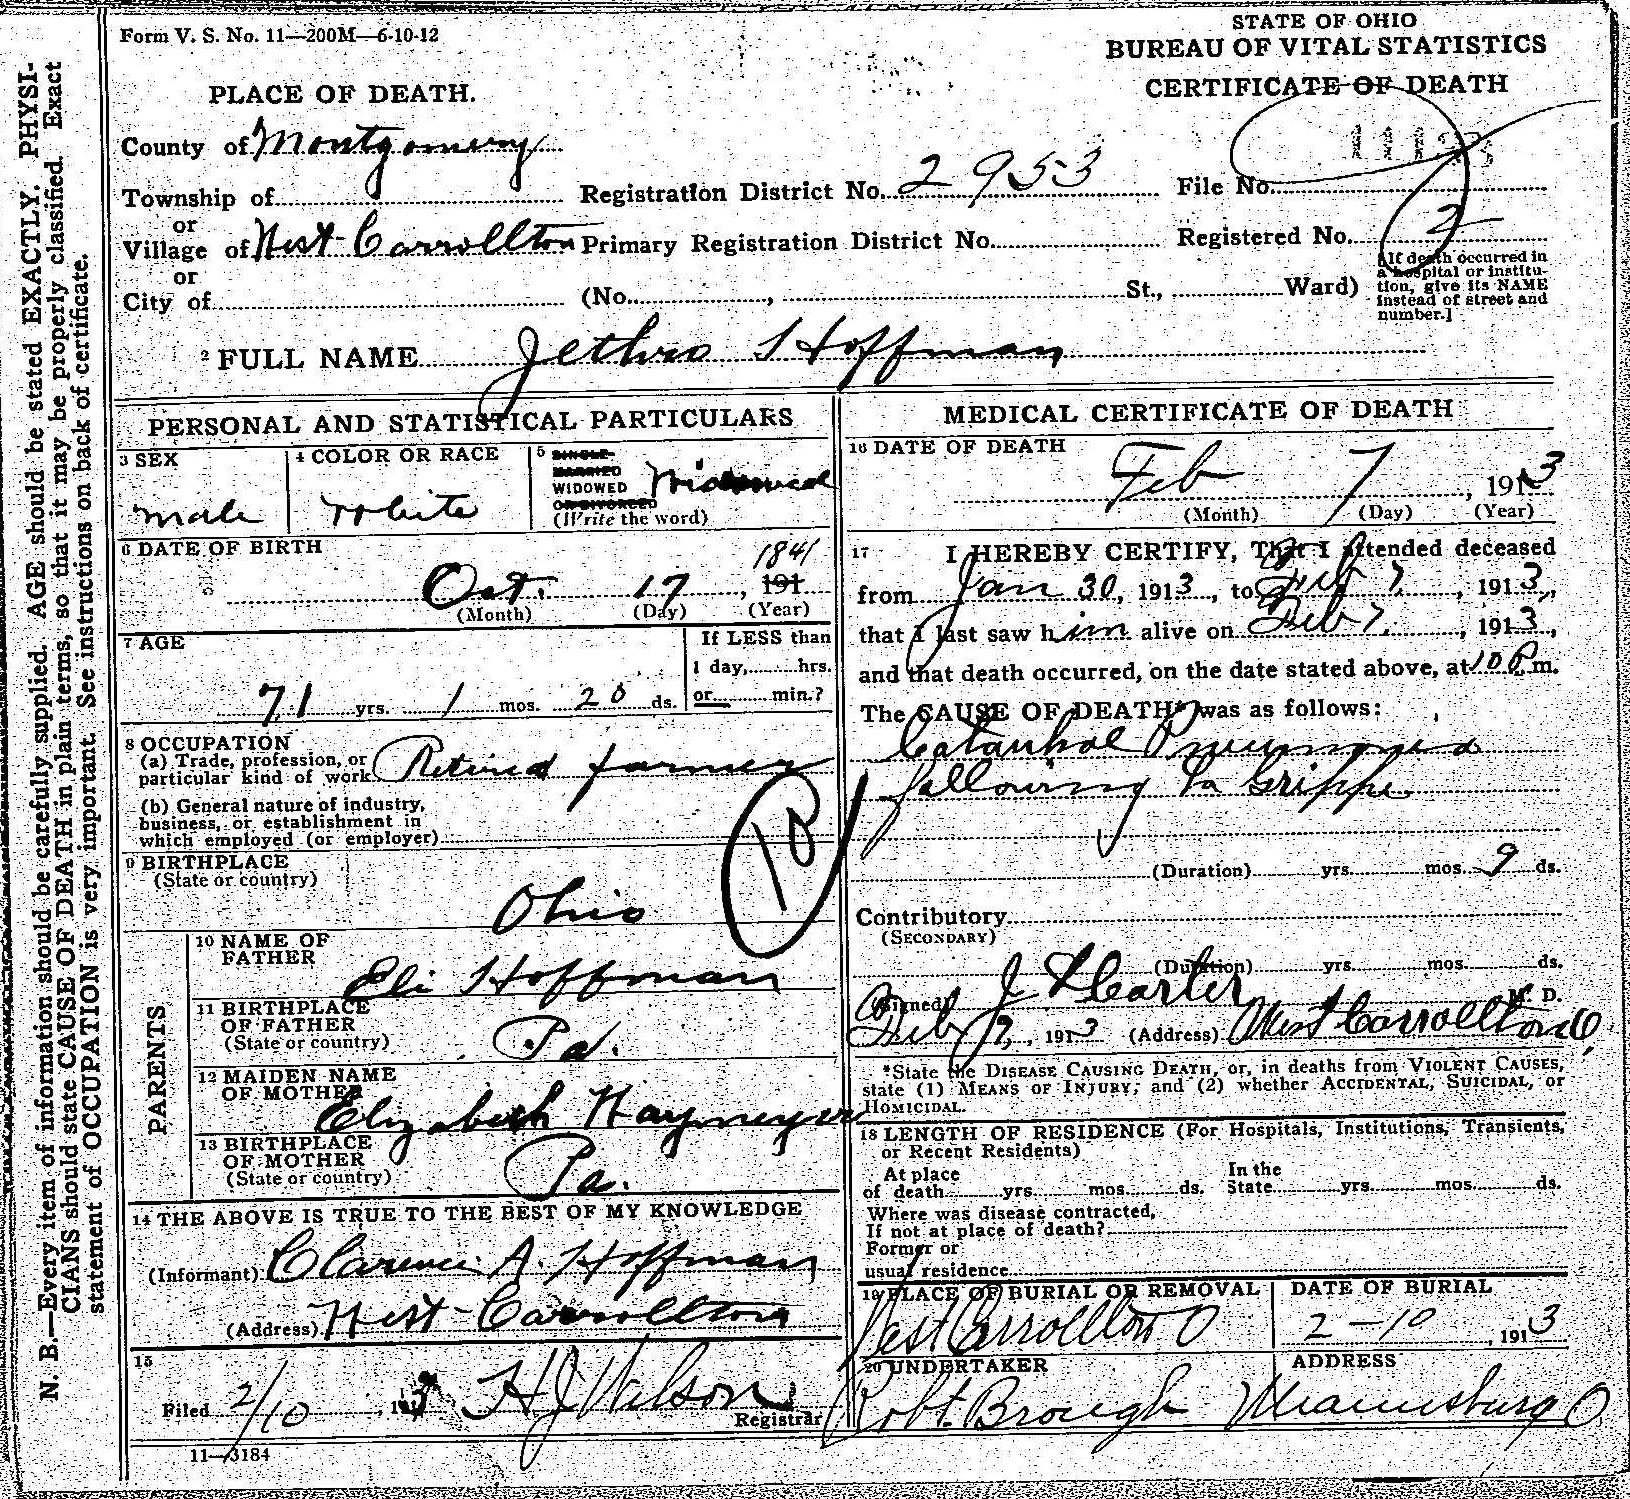 Form V. S. No. 11—200M—6-10-12
STATE OF OHIO
BUREAU OF VITAL STATISTICS
CERTIFICATE OF DEATH
PLACE OF DEATH.
County of Montgomery
Township of Registration District No. 2953 File No.
or
Village of West Carrollton Primary Registration District No. Registered No. 2
or
City of (No. , St., Ward)
[If death occurred in
a hospital or institu-
tion, give its NAME
instead of street and
number.]
2 FULL NAME Jethro Hoffman
PERSONAL AND STATISTICAL PARTICULARS
3 SEX
male
4 COLOR OR RACE
White
5 SINGLE
MARRIED
WIDOWED Widowed
OR DIVORCED
(Write the word)
6 DATE OF BIRTH
1841
Oct. 17, 191
(Month) (Day) (Year)
7 AGE
71 yrs. 1 mos. 20 ds.
If LESS than
1 day, hrs.
or min.?
8 OCCUPATION
(a) Trade, profession, or
particular kind of work Retired farmer
(b) General nature of industry,
business, or establishment in
which employed (or employer)
9 BIRTHPLACE
(State or country)
Ohio
10
PARENTS
10 NAME OF
FATHER
Eli Hoffman
11 BIRTHPLACE
OF FATHER
(State or country)
Pa.
12 MAIDEN NAME
OF MOTHER
Elizabeth Naymeyer
13 BIRTHPLACE
OF MOTHER
(State or country)
Pa.
14 THE ABOVE IS TRUE TO THE BEST OF MY KNOWLEDGE
(Informant) Clarence A. Hoffman
(Address) West Carrollton
15
Filed 2/10, 1913 H J Wilson
Registrar
11—3184
MEDICAL CERTIFICATE OF DEATH
16 DATE OF DEATH
Feb 7, 1913
(Month) (Day) (Year)
17 I HEREBY CERTIFY, That I attended deceased
from Jan 30, 1913, to Feb 7, 1913,
that I last saw him alive on Feb 7, 1913,
and that death occurred, on the date stated above, at 10 P m.
The CAUSE OF DEATH* was as follows:
Catarrhal Pneumonia
following La Grippe
(Duration) yrs. mos. 9 ds.
Contributory
(SECONDARY)
(Duration) yrs. mos. ds.
(Signed) J Carter M. D.
Feb 1913 (Address) West Carrollton O
*State the DISEASE CAUSING DEATH, or, in deaths from VIOLENT CAUSES,
state (1) MEANS OF INJURY; and (2) whether ACCIDENTAL, SUICIDAL, or
HOMICIDAL.
18 LENGTH OF RESIDENCE (For Hospitals, Institutions, Transients,
or Recent Residents)
At place
of death yrs. mos. ds.
In the
State yrs. mos. ds.
Where was disease contracted,
If not at place of death?
Former or
usual residence
19 PLACE OF BURIAL OR REMOVAL
West Carrollton O
DATE OF BURIAL
2-10, 1913
20 UNDERTAKER
Robt. Brough
ADDRESS
Miamisburg O
N. B.—Every item of information should be carefully supplied. AGE should be stated EXACTLY. PHYSI-
CIANS should state CAUSE OF DEATH in plain terms, so that it may be properly classified. Exact
statement of OCCUPATION is very important. See instructions on back of certificate.